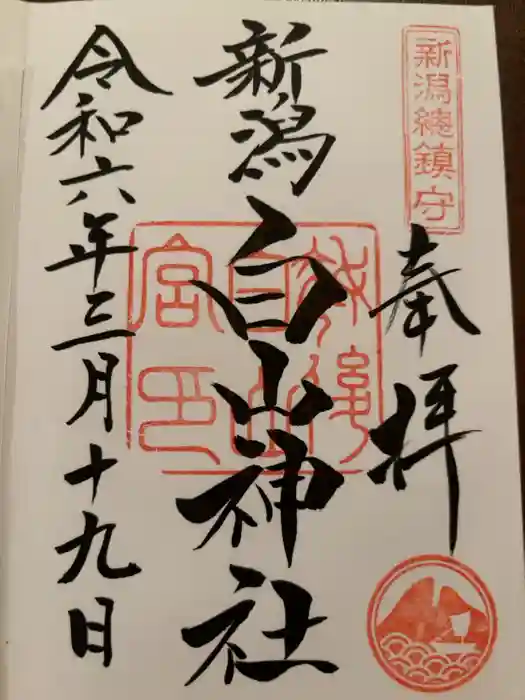 新潟総鎮守
奉拝
新潟白山神社
越後白山宮印
令和六年三月十九日